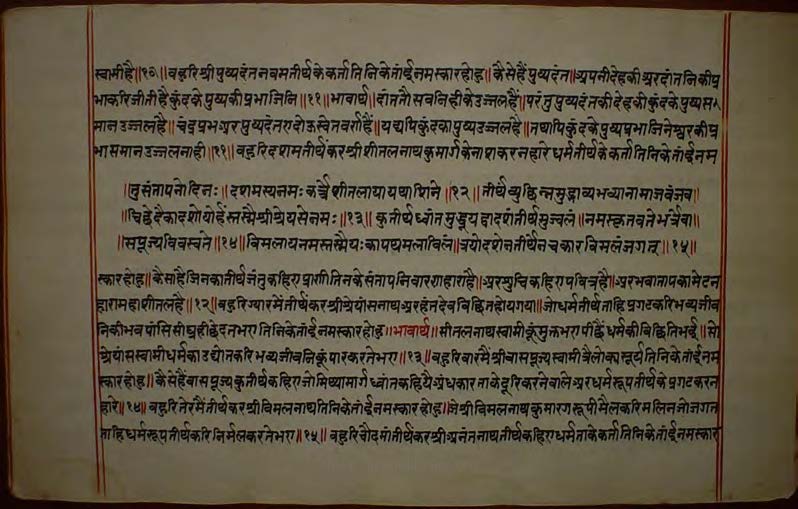 स्वामीहै॥१०॥ बहुरि श्रीपुष्पदंत नवम तीर्थके कर्ता तिनिकेतांई नमस्कार होहु॥ कैसेहैं पुष्पदंत॥ अपनी देहकी अर दांतनिकी प्र
भाकरि जीतीहै कुंदके पुष्पकी प्रभा जिनि॥११॥ भावार्थ॥ दांत तौ सबनिहीके उज्जलहैं॥ परंतु पुष्पदंतकी देहकी कुंदके पुष्पस
मान उज्जलहै॥ चंद्रप्रभ अर पुष्पदंत ए दोऊ स्वेतवर्णहैं॥ यद्यपि कुंदका पुष्प उज्जलहै॥ तथापि कुंदके पुष्प प्रभा जिनेश्वरकी प्र
भासमान उज्जल नाही॥११॥ बहुरि दशम तीर्थंकर श्रीशीतलनाथ कुमार्गके नाश करनहारे धर्मतीर्थके कर्ता तिनिकेतांई नम
तुसंतापनोदिनः॥ दशमस्य नमः कर्त्रे शीतलायापथाशिने॥१२॥ तीर्थव्युछिन्नमुद्भाव्य भव्यानामाजवंजव॥
छिदेदेकादशो योर्हंस्तस्मै श्रीश्रेयसे नमः॥१३॥ कुतीर्थध्वांतमुद्धूय द्वादशं तीर्थमुज्वलं॥ नमस्कृतवते भर्त्रे वा॥
सुपूज्यविवस्वते॥१४॥ विमलाय नमस्तस्मै यः कापथमलाविलं॥ त्रयोदशेन तीर्थेन चकार विमलं जगत्॥१५॥
स्कार होहु॥ कैसाहै जिनका तीर्थ जंतु कहिए प्राणी तिनके संताप निवारणहाराहै॥ अर शुचि कहिए पवित्रहै॥ अर भव आतापका मेटन
हारा महाशीतलहै॥१२॥ बहुरि ग्यारमें तीर्थंकर श्रीश्रेयांसनाथ अरहंतदेव विछिति होय गया॥ जो धर्मतीर्थ ताहि प्रगटकरि भव्यजीव
निकी भवपांसि सीघ्रही छेदन भए तिनिकेतांई नमस्कार होहु॥ भावार्थ॥ सीतलनाथ स्वामीकूं मुक्त भए पीछैं धर्मकी विछिति भई॥ सो
श्रेयांसस्वामी धर्मका उद्योतकरि भव्यजीवनिकूं पार करते भए॥१३॥ बहुरि बारमैं श्रीवासपूज्य स्वामी त्रैलोक्य सूर्य तिनिकेतांई नम
स्कार होहु॥ कैसेहैं वासपूज्य कुतीर्थ कहिए जो मिथ्यामार्ग ध्वांत कहियै अंधकार ताके दूरि करनेवाले अर धर्मरूप तीर्थके प्रगट करन
हारे॥१४॥ बहुरि तेरमैं तीर्थंकर श्रीविमलनाथ तिनिकेतांई नमस्कार होहु॥ जे श्रीविमलनाथ कुमारगरूपी मैलकरि मलिन जो जगत
ताहि धर्मरूप तीर्थकरि निर्मल करते भए॥१५॥ बहुरि चौदमां तीर्थंकर श्रीअनंतनाथ तीर्थ कहिए धर्म ताके कर्ता तिनिकेतांई नमस्कार